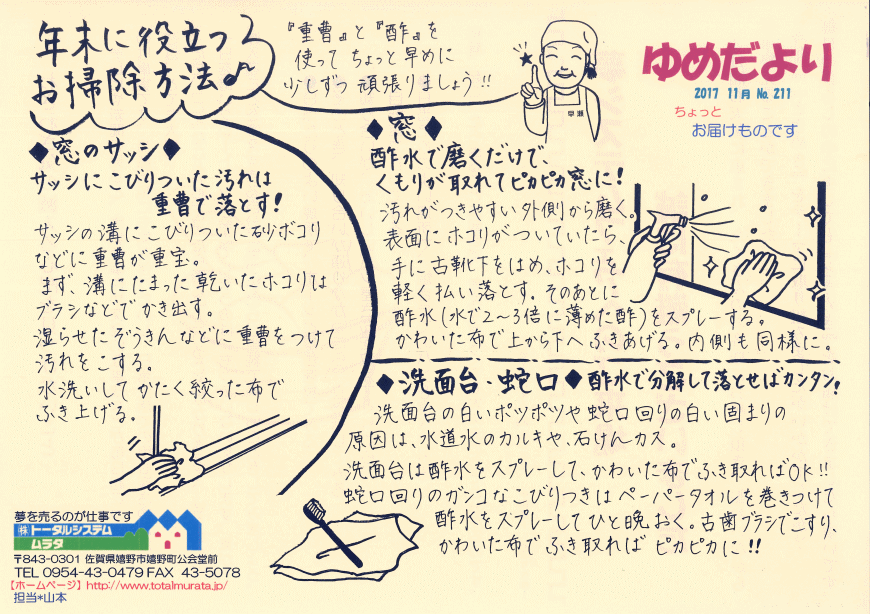 年末に役立つ
お掃除方法♪
『重曹』と『酢』を
使って ちょっと早めに
少しずつ 頑張りましょう!!
早瀬
ゆめだより
2017 11月 No. 211
ちょっと
お届けものです
◆窓のサッシ◆
サッシにこびりついた汚れは
重曹で落とす!
サッシの溝にこびりついた砂ボコリ
などに重曹が重宝。
まず、溝にたまった乾いたホコリは
ブラシなどでかき出す。
湿らせたぞうきんなどに重曹をつけて
汚れをこする。
水洗いしてかたく絞った布で
ふき上げる。
◆窓◆
酢水で磨くだけで、
くもりが取れてピカピカ窓に!
汚れがつきやすい外側から磨く。
表面にホコリがついていたら、
手に古靴下をはめ、ホコリを
軽く払い落とす。そのあとに
酢水(水で2~3倍に薄めた酢)をスプレーする。
かわいた布で上から下へふきあげる。内側も同様に。
◆洗面台・蛇口◆酢水で分解して落とせばカンタン!
洗面台の白いポツポツや蛇口回りの白い固まりの
原因は、水道水のカルキや、石けんカス。
洗面台は酢水をスプレーして、かわいた布でふき取ればOK!!
蛇口回りのガンコなこびりつきはペーパータオルを巻きつけて
酢水をスプレーしてひと晩おく。古歯ブラシでこすり、
かわいた布でふき取れば ピカピカに!!
夢を売るのが仕事です
(株)トータルシステム
ムラタ
〒843-0301 佐賀県嬉野市嬉野町公会堂前
TEL 0954-43-0479 FAX 43-5078
【ホームページ】http://www.totalmurata.jp/
担当*山本